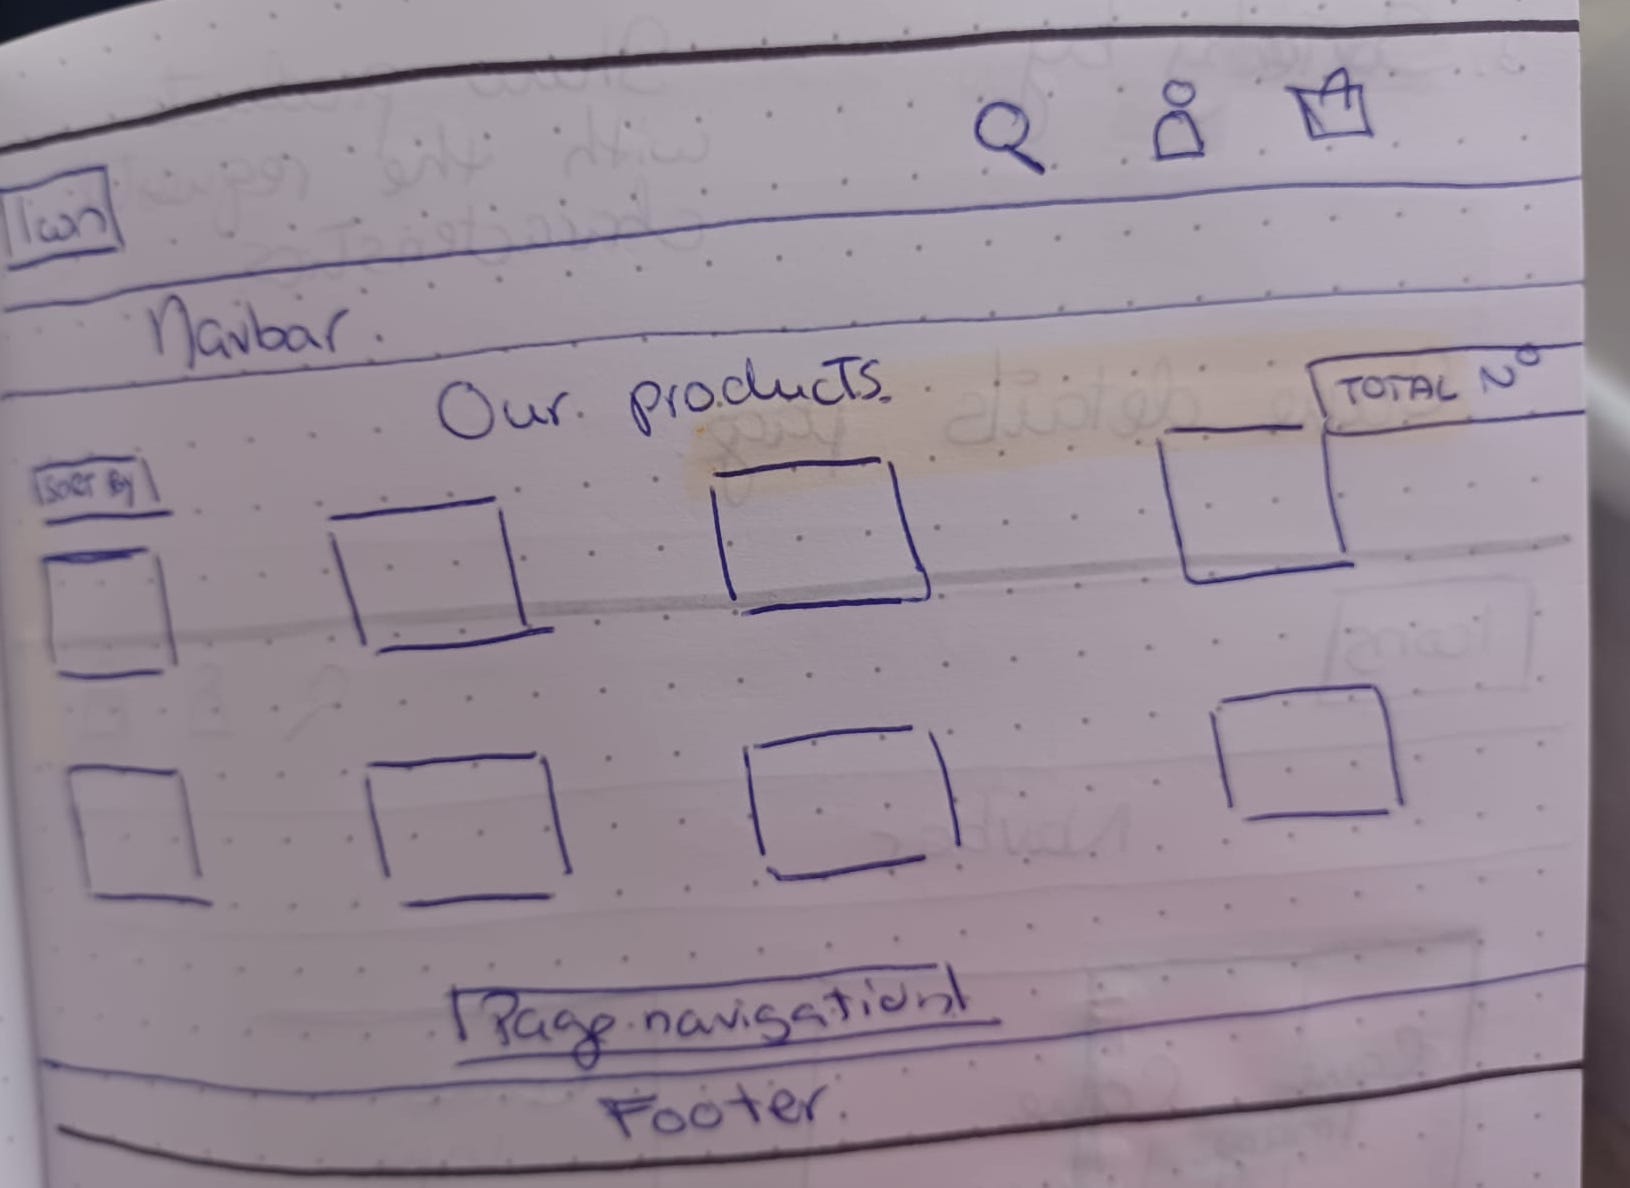 Icon
Navbar.
Our products.
TOTAL Nº
SORT By
Page navigation
Footer.